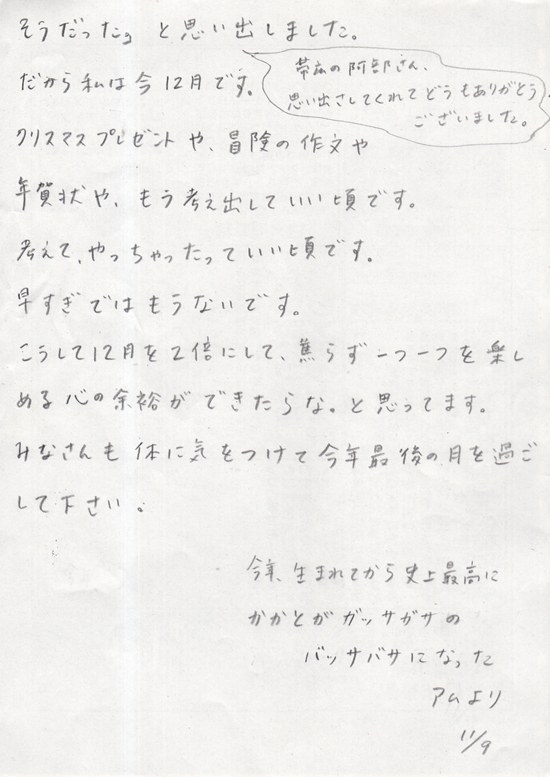 そうだった。と思い出しました。
だから私は今12月です。
帯広の阿部さん、
思い出さしてくれてどうもありがとう
ございました。
クリスマスプレゼントや、冒険の作文や
年賀状や、もう考え出していい頃です。
考えて、やっちゃったっていい頃です。
早すぎではもうないです。
こうして12月を2倍にして、焦らず一つ一つを楽し
める心の余裕ができたらな。と思ってます。
みなさんも体に気をつけて今年最後の月を過ご
して下さい。
今年、生まれてから史上最高に
かかとがガッサガサの
バッサバサになった
アムより
11/9